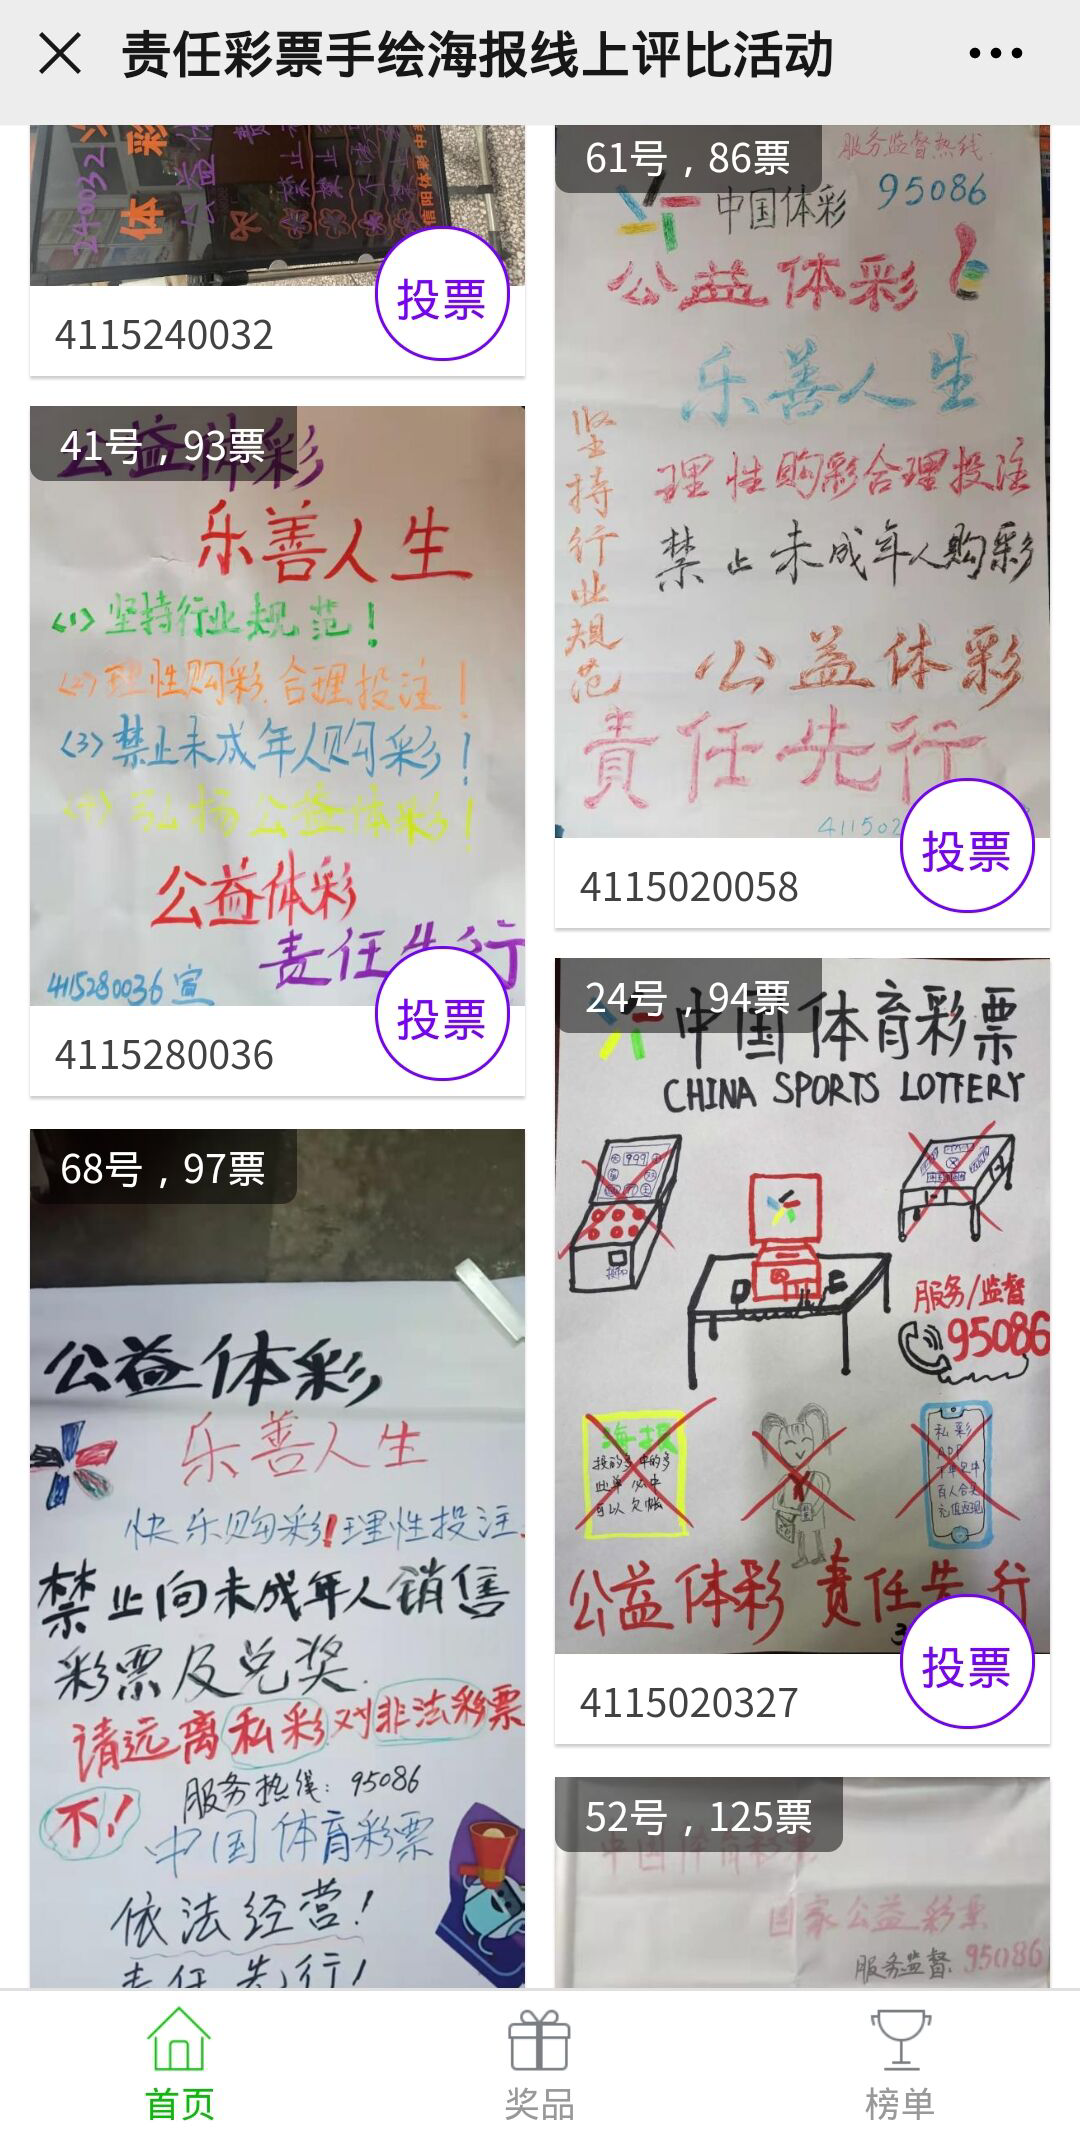 责任彩票手绘海报线上评比活动
240032
体彩
公益体
信阳体彩中
投票
4115240032
41号，93票
公益体彩
乐善人生
(1) 坚持行业规范！
(2) 理性购彩.合理投注！
(3) 禁止未成年人购彩！
(4) 弘扬公益体彩！
公益体彩
责任先行
4115280036 宣
投票
4115280036
68号，97票
公益体彩
乐善人生
快乐购彩！理性投注.
禁止向未成年人销售
彩票及兑奖.
请远离私彩对非法彩票
不！
服务热线：95086
中国体育彩票
依法经营！
责任先行！
61号，86票
服务监督热线.
95086
中国体彩
公益体彩
乐善人生
坚持行业规范
理性购彩合理投注
禁止未成年人购彩
公益体彩
責任先行
411502
投票
4115020058
24号，94票
中国体育彩票
CHINA SPORTS LOTTERY
999
服务/监督
95086
海报
私彩
APP
百人合买
公益体彩 责任先行
投票
4115020327
52号，125票
中国体育彩票
国家公益彩票
服务监督: 95086
首页
奖品
榜单